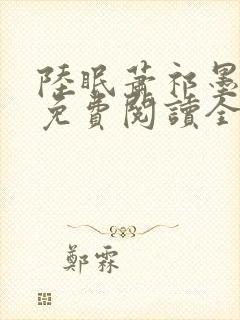 陸眠蕭祁墨
免費閱讀全
鄭霖